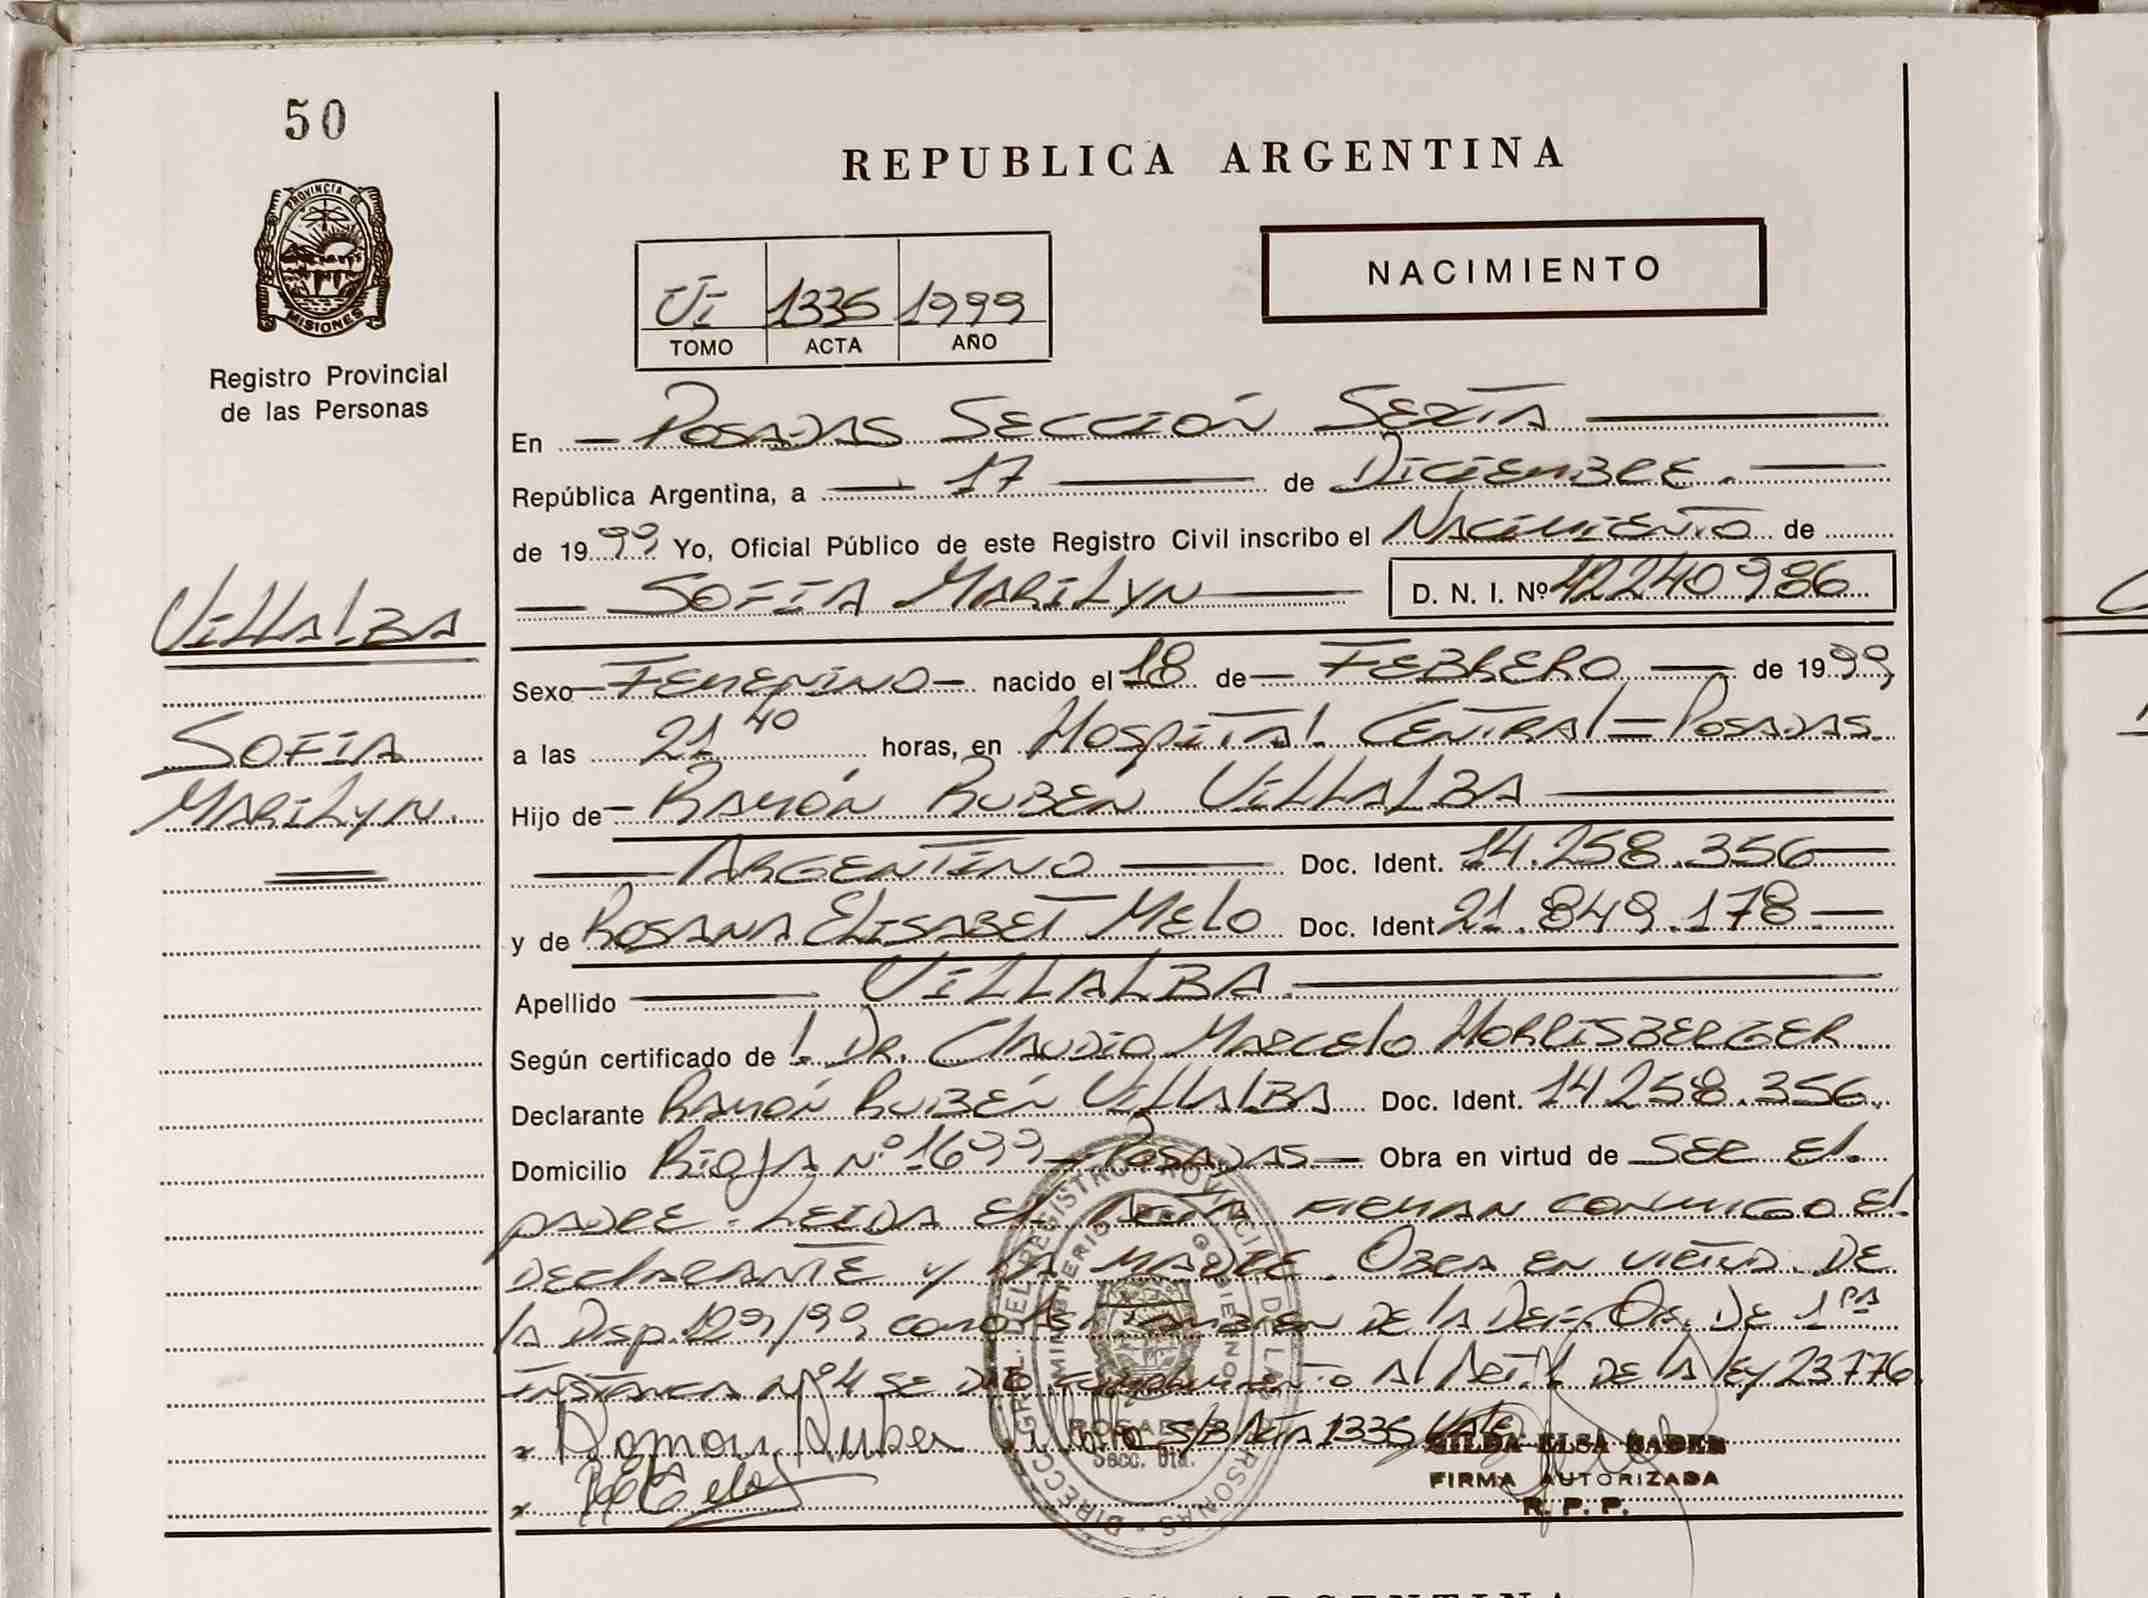 50
REPUBLICA ARGENTINA
PROVINCIA DE
MISIONES
Registro Provincial
de las Personas
NACIMIENTO
1335 1999
TOMO ACTA AÑO
En POSADAS SECCIÓN SEXTA
República Argentina, a 17 de DICIEMBRE.
de 1999 Yo, Oficial Público de este Registro Civil inscribo el NACIMIENTO de
SOFIA MARILYN D. N. I. Nº 42240986
VILLALBA
SOFIA
MARILYN.
Sexo FEMENINO nacido el 18 de FEBRERO de 1999,
a las 21 40 horas, en HOSPITAL CENTRAL = POSADAS.
Hijo de RAMÓN RUBÉN VILLALBA
ARGENTINO Doc. Ident. 14.258.356
y de ROSANA ELISABET MELO Doc. Ident. 21.849.178
Apellido VILLALBA.
Según certificado de l. DR. CLAUDIO MARCELO MORRISBERGER
Declarante RAMÓN RUBÉN VILLALBA Doc. Ident. 14258.356.
Domicilio RIOJA Nº 1699 - POSADAS Obra en virtud de SER EL
PADRE. LEIDA EL ACTA FIRMAN CONMIGO EL
DECLARANTE y LA MADRE. OBRA EN VIRTUD DE
LA Disp. 129/99 COMO ASI TAMBIEN DE LA DEF. OF. DE 1RA
INSTANCIA Nº 4 SE DIO CUMPLIMIENTO AL ART. DE LA LEY 23776
Ramon Ruben S/B ACTA 1335 Vale
GILDA ELSA BADER
FIRMA AUTORIZADA
R. P. P.
DIRECC. GRAL. DEL REGISTRO PROVINCIAL DE LAS PERSONAS
MINISTERIO DE GOBIERNO
POSADAS
Secc. 6ta.
ARGENTINA